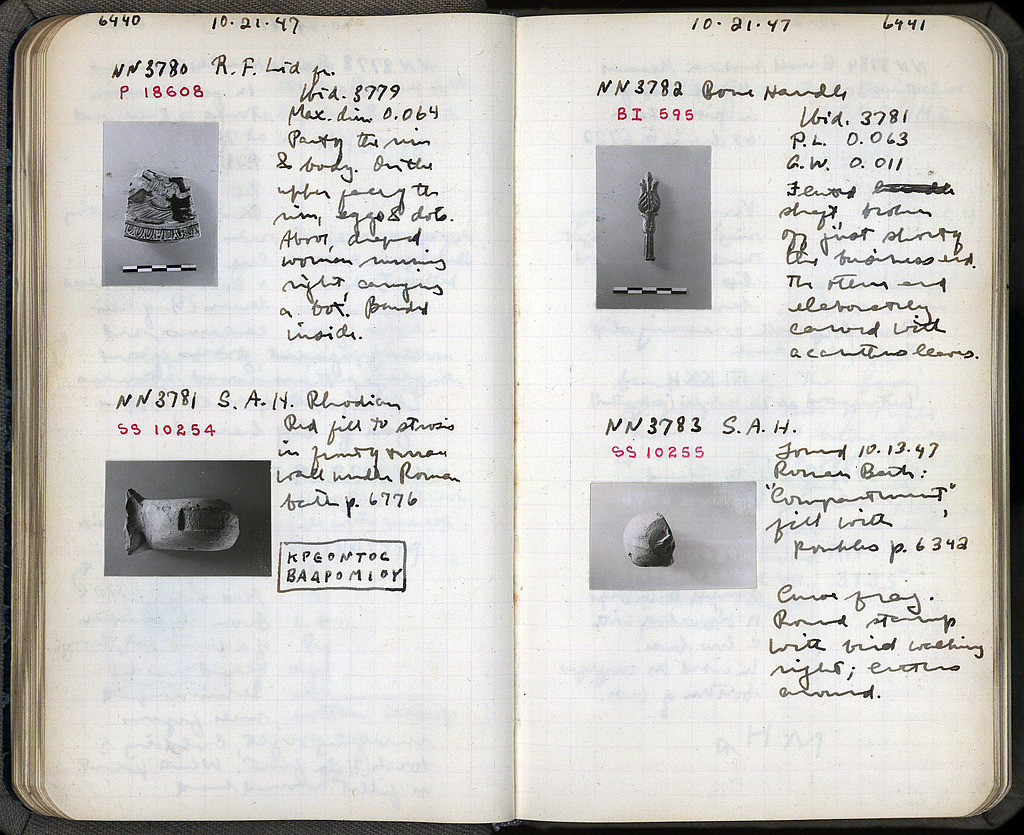 6440 10·21·47
NN3780 R.F. Lid fr.
P 18608
Ibid. 3779
Max. dim 0.064
Part of the rim
& body. On the
upper face of the
rim, eggs & dots.
Above, draped
woman running
right, carrying
a box. Banded
inside.
NN3781 S.A.H. Rhodian
SS 10254
Red fill to strosis
in
wall under Roman
bath p. 6776
ΚΡΕΟΝΤΟΣ
ΒΑΔΡΟΜΙΟΥ
10·21·47 6441
NN3782 Bone Handle
BI 595
Ibid. 3781
P.L. 0.063
G.W. 0.011
Fluted
shaft, broken
off just short of
the business end.
The stem end
elaborately
carved with
acanthus leaves.
NN3783 S.A.H.
SS 10255
Found 10·13·47
Roman Bath:
"Compartment"
fill with
p. 6342
Curve frag.
Round stamp
with bird walking
right; letters
around.